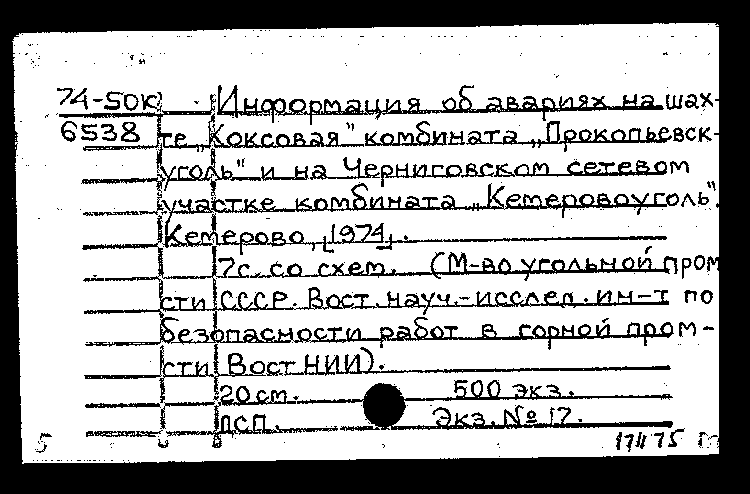 74-50к Информация об авариях на шах-
6538 те „Коксовая" комбината „Прокопьевск-
уголь" и на Черниговском сетевом
участке комбината „Кемеровоуголь".
Кемерово, [1974].
7с. со схем. (М-во угольной пром
сти СССР. Вост. науч.-исслед. ин-т по
безопасности работ в горной пром-
сти ВостНИИ).
20 см. 500 экз.
ДСП. Экз. № 17.
5 17475